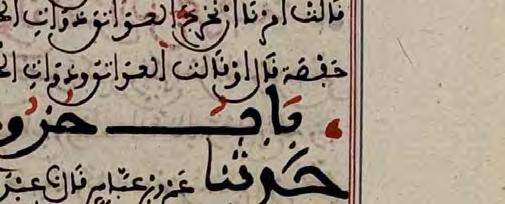 قالت امرنا ان نخرج العواتق وذوات
حفصة قال او قالت العواتق وذوات
باب خرو
حدثنا عمرو بن عباس قال نا عبد